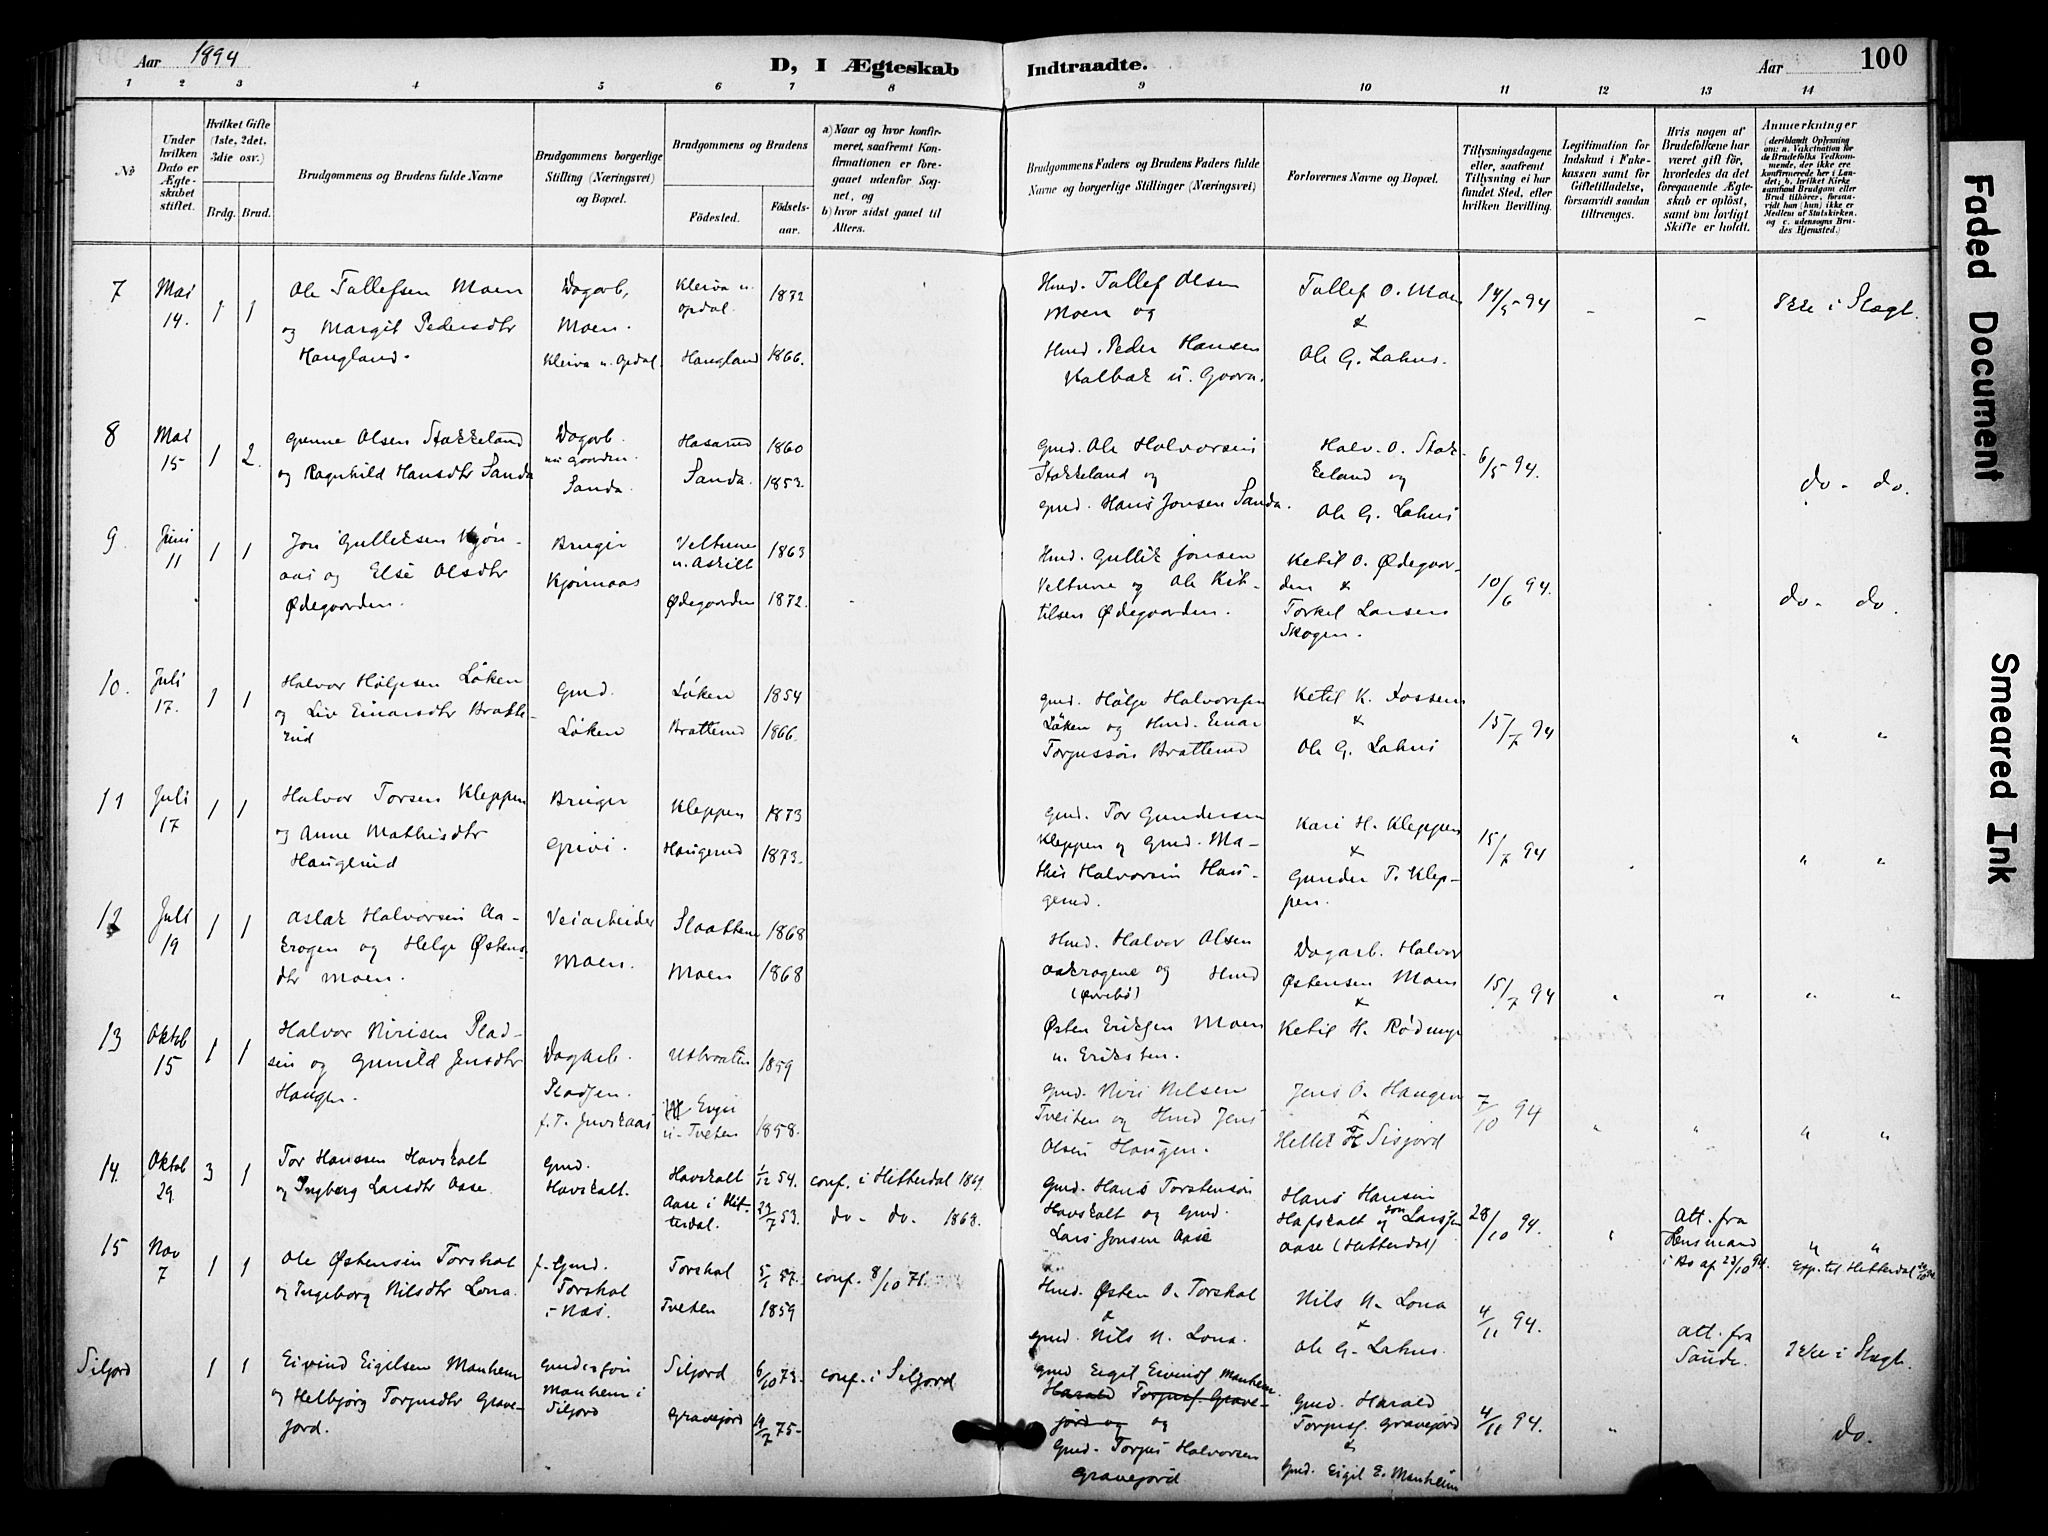 Aar 1894
D, I Ægteskab Indtraadte.
Aar 100
1 2 3 4 5 6 7 8 9 10 11 12 13 14
No
Under hvilken Dato er Ægteskabet stiftet.
Hvilket Gifte (1ste, 2det, 3die osv.)
Brdg. Brud.
Brudgommens og Brudens fulde Navne
Brudgommens borgerlige Stilling (Næringsvei) og Bopæl.
Brudgommens og Brudens
Födested.
Födselsaar.
a) Naar og hvor konfirmeret, saafremt Konfirmationen er foregaaet udenfor Sognet, og
b) hvor sidst gaaet til Alters.
Brudgommens Faders og Brudens Faders fulde Navne og borgerlige Stillinger (Næringsvei)
Forlovernes Navne og Bopæl.
Tillysningsdagene eller, saafremt Tillysning ei har fundet Sted, efter hvilken Bevilling.
Legitimation for Indskud i Fakekassen samt for Giftetilladelse, forsaavidt saadan tiltrænges.
Hvis nogen af Brudefolkene har været gift før, hvorledes da det foregaaende Ægteskab er oplöst, samt om lovligt Skifte er holdt.
Anmerkninger (deriblandt Oplysning om: a. Vakcination for de Brudefolks Vedkommende, der ikke ere konfirmerede her i Landet; b. hvilket Kirkesamfund Brudgom eller Brud tilhörer, forsaavidt han (hun) ikke er Medlem af Statskirken. og c. udensogns Brudes Hjemsted.)
7 Mai 14. 1 1 Ole Tallefsen Moen og Margit Pedersdtr Haugland.
Dagarb, Moen. Kleiva u. Opdal.
Kleiva u. Opdal 1872
Haugland 1866.
Hmd. Tallef Olsen Moen og
Hmd. Peder Hansen Kalbak u. Gaara.
Tallef O. Moen & Ole G. Lahus.
14/5 94 - - Ikke i Slægt.
8 Mai 15 1 2. Gunne Olsen Stokkeland og Ragnhild Hansdtr Sanda
Dagarb. Sanda.
Hasarud 1860
Sanda. 1853.
Gmd. Ole Halvorsen Stokkeland og
Gmd. Hans Jonsen Sanda.
Halv. O. Stokkeland og Ole G. Lahus
6/5 94. do - do.
9 Juni 11 1 1 Jon Gulliksen Kjønaas og Else Olsdtr Ødegaarden.
Bruger Kjønnaas
Veltune u. Askilt 1863
Ødegaarden 1872.
Hmd. Gullik Jonsen Veltune og Ole Kittilsen Ødegaarden.
Ketil O. Ødegaarden & Torkel Larsen Skogen.
10/6 94. do - do.
10. Juli 17. 1 1 Halvor Hølgesen Løken og Liv Einarsdtr Bratterud
Gmd. Løken
Løken 1854
Bratterud 1866.
Gmd. Hølge Halvorsen Løken og Hmd. Einar Torjussøn Bratterud
Ketil K. Fossen & Ole G. Lahus
15/7 94 " "
11 Juli 17 1 1 Halvor Torsen Kleppen og Anne Mathisdtr Haugerud
Bruger Grivi.
Kleppen 1873
Haugerud 1873.
Gmd. Tor Gundersen Kleppen og Gmd. Mathis Halvorsen Haugerud.
Kari H. Kleppen & Gunder T. Kleppen.
15/7 94 " "
12 Juli 19 1 1 Aslak Halvorsen Aakrogen og Helge Østensdtr Moen.
Veiarbeider Moen.
Slaatten 1868
Moen 1868
Hmd. Halvor Olsen Aakrogene og Hmd Østen Eriksen Moen u. Eriksten.
Dagarb. Halvor Østensen Moen & Ketil H. Rødmyr
15/7 94 " " " "
13 Oktob 15 1 1 Halvor Nirisen Pladsen og Gunild Jensdtr Haugen.
Dagarb. Pladsen.
1859
u. Tveten 1858.
Gmd. Niri Nilsen Tveiten og Hmd Jens Olsen Haugen.
Jens O. Haugen & Hellek H Sisjord
7/10 94 " " " "
14. Oktob 29. 3 1 Tor Hanssen Havskalt og Ingeborg Larsdtr Aase.
Gmd. Havskalt.
Havskalt 1/12 54.
Aase i Hitterdal. 23/7 53.
conf. i Hitterdal 1869.
do - do. 1868.
Gmd. Hans Torstensøn Havskalt og Gmd. Lars Jonsen Aase
Hans Hansen Hafskalt og Jon Larsen Aase (Hitterdal)
28/10 94. "
Att. fra Lensmand i Bø af 23/10 94.
" " Exp. til Hitterdal
15 Nov 7 1 1 Ole Østensen Torskal og Ingeborg Nilsdtr Lona.
f. Gmd. Torskal i Næs.
Torskal 5/1 57.
Tveten 1859
conf. 8/10 71.
Hmd. Østen O. Torskal & Gmd. Nils N. Lona.
Nils N. Lona & Ole G. Lahus.
4/11 94.
Att. fra Saude.
Ikke i Slægt.
Siljord 1 1 Eivind Eigilsen Manheim og Helbjørg Torjusdtr Gravejord.
Gmdssøn Manheim i Siljord
Siljord 6/10 73.
Gravejord 19/7 75-
conf. i Siljord
Gmd Eigil Eivinds Manheim.
Harald Torjusf. Gravejord og og
Gmd. Torjus Halvorsen Gravejord
Gmd. Harald Torjusf. Gravejord & Gmd. Eigil E. Manheim
4/11 94. " do.
Faded Document
Smeared Ink